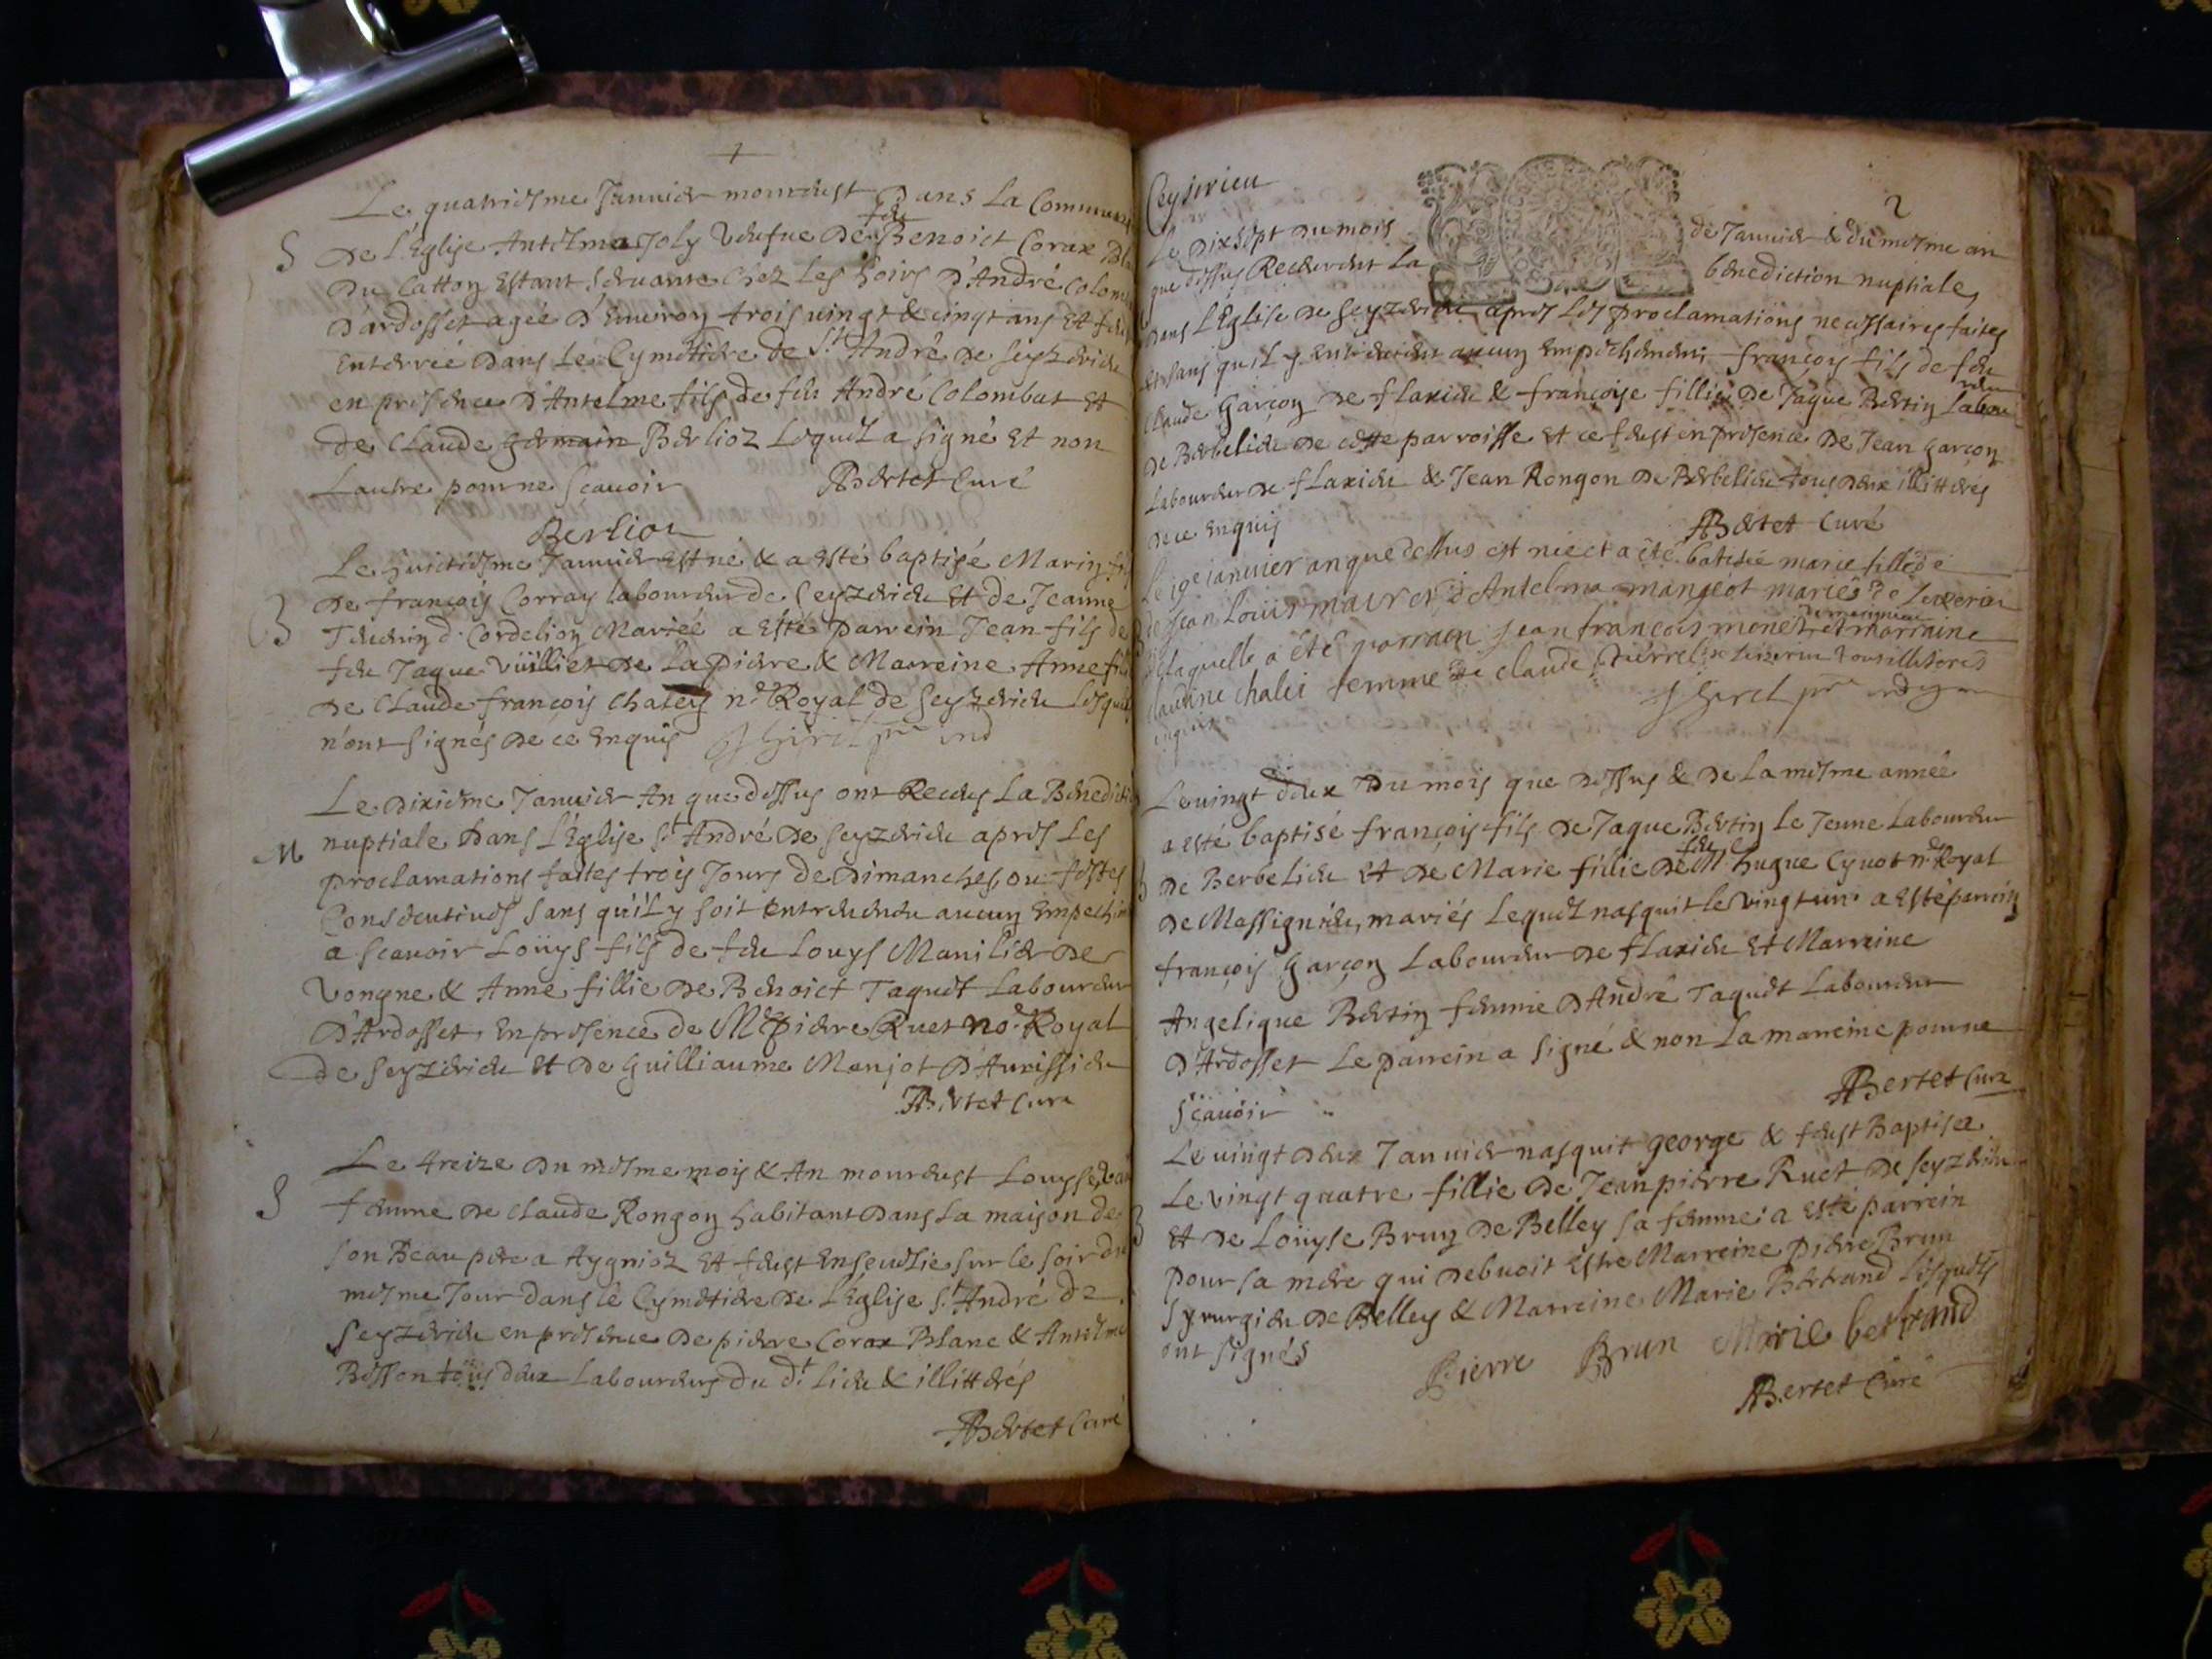 1
Le quatriesme Januier mourust Dans La Commun
S
De L'Eglise Antelma Joly Veufue De feu Benoict Corax Bla
Du Catton Estant Seruante Chez Les hoirs D'André Colom
D'ardosset agée D'Enuiron trois uingt & cinqt ans Et feu
Enterrée Dans Le Cymetiere de St André de Seyzerieu
en presence D'Antelme fils de feu André Colombat Et
de Claude germain Berlioz Lequel a signé Et non
Lautre pour ne Scauoir ABertet Curé
Berlion
Le huictiesme Januier Est né & a Esté baptisé Marin fi
B
De françois Corray labourdeur de Seyzerieu Et de Jeanne
Cordelion Mariée a Esté Parrein Jean fils de
feu Jaque Vüilliet De La pierre & Marreine Anne fi
De Claude françois Chaley nre Royal de Seyzerieu Lesquel
n'ont signés De ce Enquis
Le Dixiesme Januier An que dessus ont Receus La Benedicti
M
nuptiale Dans L'Eglise St André De Seyzerieu apres Les
proclamations faites trois Jours de Dimanches ou festes
Consecutiues Sans qu'il y soit Entreuenu aucun Empeche
a Scauoir Loüys fils de feu Louys Manilier De
Vongne & Anne fillie De Benoict Taquet Labourdeur
D'Ardosset, En presence de Me pierre Ruet no.e Royal
de Seyzerieu Et De Guilliaume Manjot D'Aurissieu
ABertet Cure
Le treize Du mesme mois & An mourust Louyse
S
femme De Claude Rongon habitant Dans La maison de
son Beau pere a Aygnioz Et feust Enseuelie sur le soir du
mesme Jour dans le Cymetiere De L'Eglise St André de
Seyzerieu en presence De pierre Corax Blanc & Antelme
Bisson tous deux Labourdeurs du dt Lieu & illitterés
ABertet Curé
Ceyserieu
2
Le Dixsept Du mois de Januier & du mesme an
que dessus Receurent La benediction nuptiale,
Dans L'Eglise De Seyzerieu apres Les proclamations necessaires faites
Et sans qu'il y Entreuint aucun Empechement françois fils de feu
Claude Garçon De flaxieu & françoise fillie De Jaque Bertin Labou
rdeur
De Berbelieu De cette parroisse Et ce feust en presence De Jean Garçon
Labourdeur De flaxieu & Jean Rongon De Berbelieu tous deux illitterés
De ce Enquis
ABertet Curé
Le 19e ianuier an que dessus est nee et a été batisée marie fille de
de Jean Louis maurer d'Antelma mangeot mariés de
B
laquelle a été parrain Jean françois monet et marraine
claudine chalei femme de claude
enquis
Le uingt deux Du mois que Dessus & De La mesme année
a esté baptisé françois fils De Jaque Bertin Le Jeune Labourdeur
B
De Berbelieu Et De Marie fillie De feu Me hugue Cyuot nre Royal
De Massignieu, mariés Lequel nasquit le Vingt un. a Esté parrein
françois Garçon Labourdeur De flaxieu Et Marreine
Angelique Bertin femme D'André Taquet Labourdeur
D'Ardosset Le parrein a signé & non La marreine pour ne
Scauoir
ABertet Cure
Le uingt deux Januier nasquit george & feust Baptisée
Le Vingt quatre fillie De Jean pierre Ruet De Seyzerieu
B
Et De Loüyse Brun De Belley sa femme: a Esté parrein
pour sa mere qui Debuoit Estre Marreine pierre Brun
Syrurgien De Belley & Marreine Marie Bertrand Lesquels
ont signés
Pierre Brun Marie bertrand
ABertet Curé